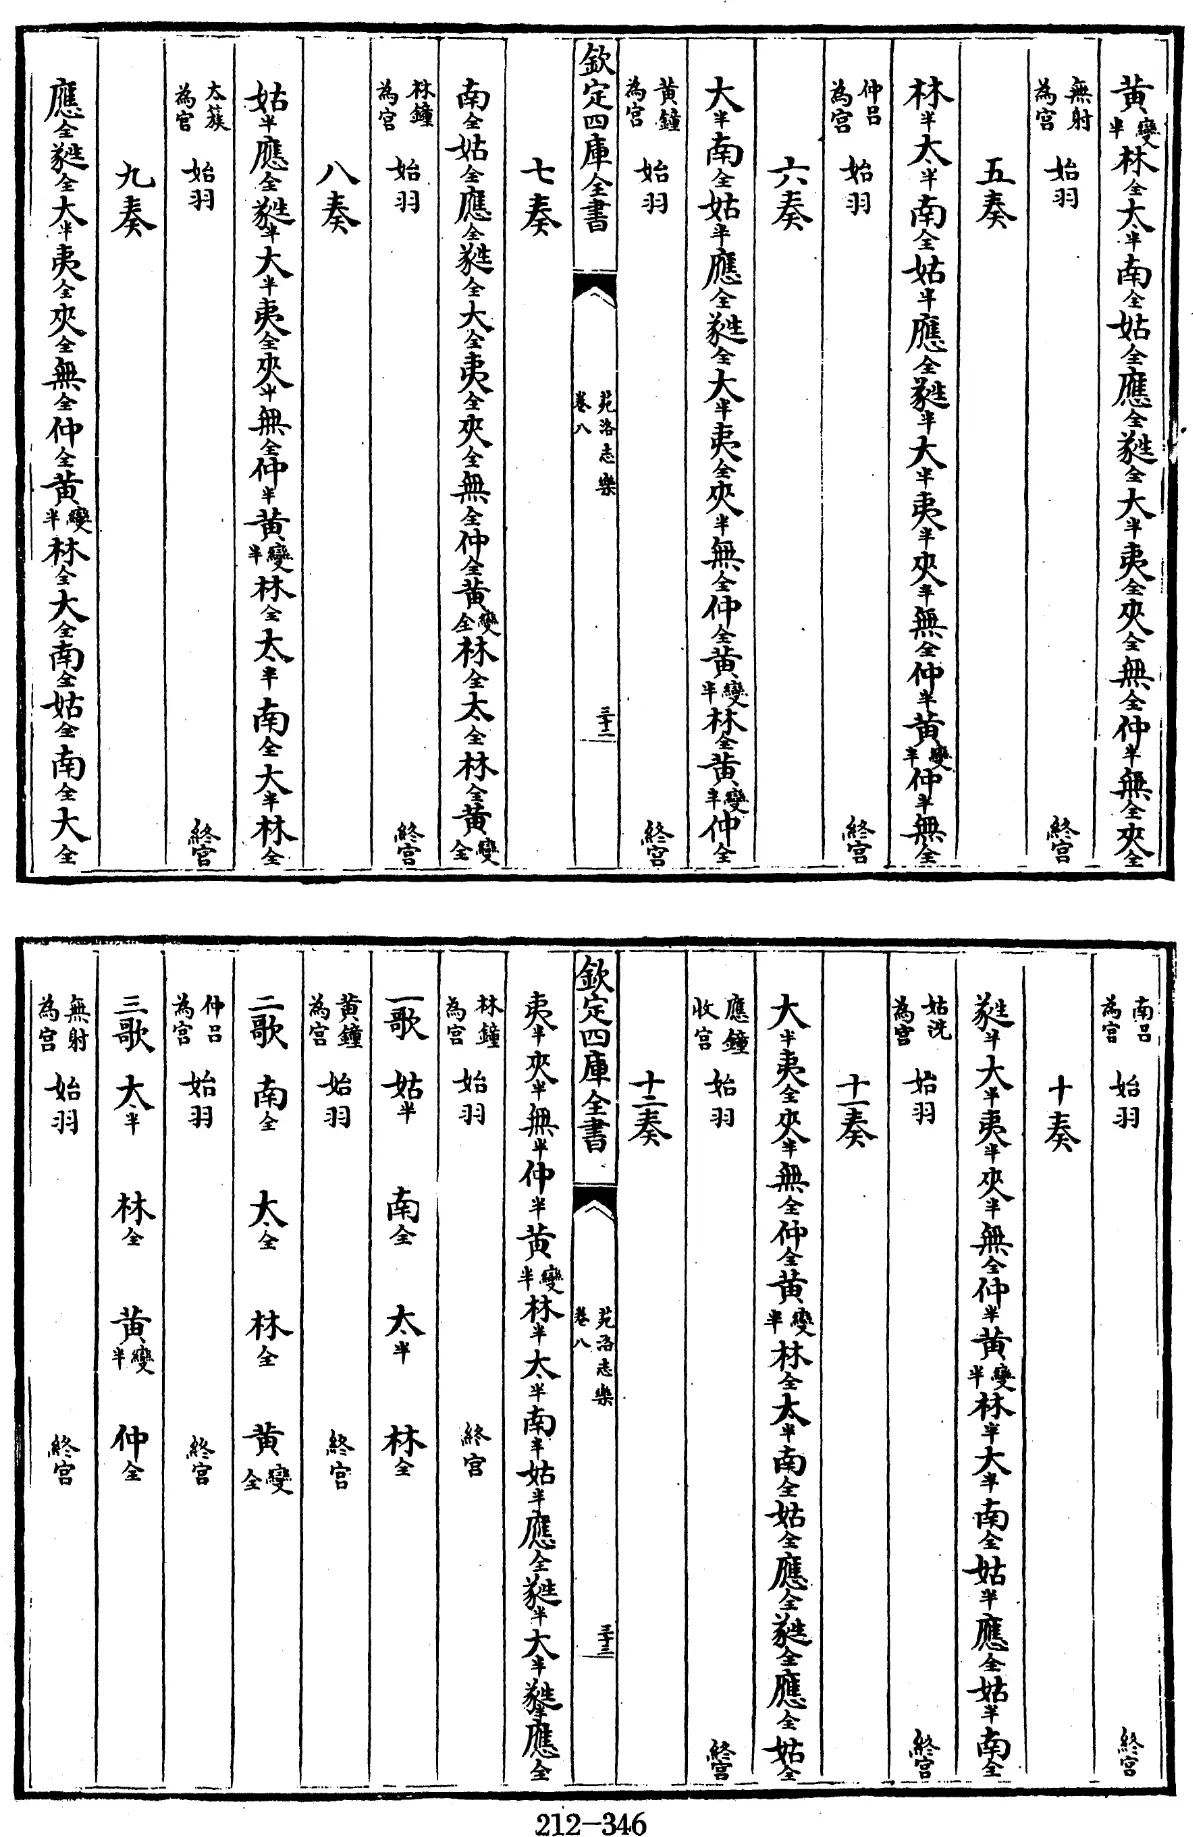 黃變半林全太半南全姑全應全蕤全大半夷全夾全無全仲半無全夾全
無射為宮　始羽　終宮
五奏
林半太半南全姑半應全蕤半大半夷半夾半無全仲半黃變半仲半無全
仲呂為宮　始羽　終宮
六奏
大半南全姑半應全蕤全大半夷全夾半無全仲全黃變半林全黃變半仲全
黃鐘為宮　始羽　終宮
欽定四庫全書　苑洛志樂卷八　三十二
七奏
南全姑全應全蕤全大全夷全夾全無全仲全黃變全林全太全林全黃變全
林鐘為宮　始羽　終宮
八奏
姑半應全蕤半大半夷全夾半無全仲半黃變半林全太半南全大半林全
太簇為宮　始羽　終宮
九奏
應全蕤全大半夷全夾全無全仲全黃變半林全大全南全姑全南全大全
南呂為宮　始羽　終宮
十奏
蕤半大半夷半夾半無全仲半黃變半林半大半南全姑半應全姑半南全
姑洗為宮　始羽　終宮
十一奏
大半夷全夾半無全仲全黃變半林全太半南全姑全應全蕤全應全姑全
應鐘收宮　始羽　終宮
十二奏
夷半夾半無半仲半黃變半林半太半南半姑半應全蕤半大半蕤半應全
欽定四庫全書　苑洛志樂卷八　三十三
林鐘為宮　始羽　終宮
一歌　姑半　南全　太半　林全
黃鐘為宮　始羽　終宮
二歌　南全　太全　林全　黃變全
仲呂為宮　始羽　終宮
三歌　太半　林全　黃變半　仲全
無射為宮　始羽　終宮
212-346